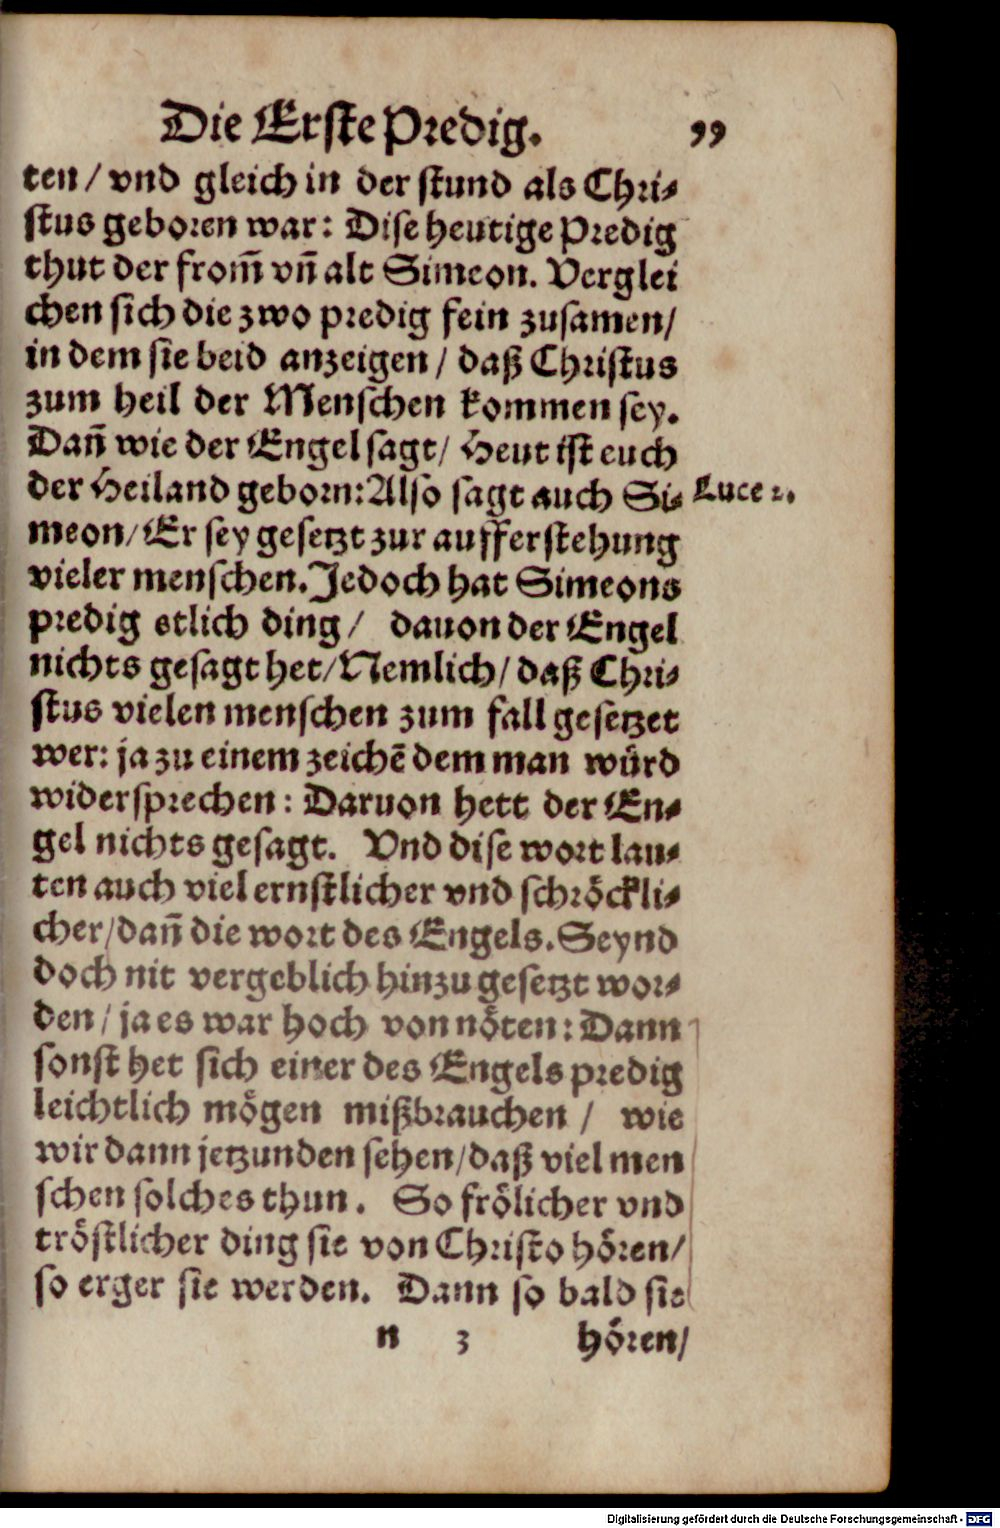 Die Erste Predig. 99
ten / vnd gleich in der stund als Chri-
stus geboren war: Dise heutige Predig
thut der from̃ vñ alt Simeon. Verglei
chen sich die zwo predig fein zusamen /
in dem sie beid anzeigen / daß Christus
zum heil der Menschen kommen sey.
Dañ wie der Engel sagt / Heut ist euch
der Heiland geborn: Also sagt auch Si- Luce 2.
meon / Er sey gesetzt zur aufferstehung
vieler menschen. Jedoch hat Simeons
predig etlich ding / dauon der Engel
nichts gesagt het / Nemlich / daß Chri-
stus vielen menschen zum fall gesetzet
wer: ja zu einem zeichē dem man würd
widersprechen: Daruon hett der En-
gel nichts gesagt. Vnd dise wort lau-
ten auch viel ernstlicher vnd schröckli-
cher / dañ die wort des Engels. Seynd
doch nit vergeblich hinzu gesetzt wor-
den / ja es war hoch von nöten: Dann
sonst het sich einer des Engels predig
leichtlich mögen mißbrauchen / wie
wir dann jetzunden sehen / daß viel men
schen solches thun. So frölicher vnd
tröstlicher ding sie von Christo hören /
so erger sie werden. Dann so bald sie
n 3 hören /
Digitalisierung gefördert durch die Deutsche Forschungsgemeinschaft - DFG